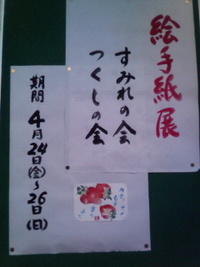 絵手紙展
すみれの会
つくしの会
期間 4月24日(金)~26日(日)